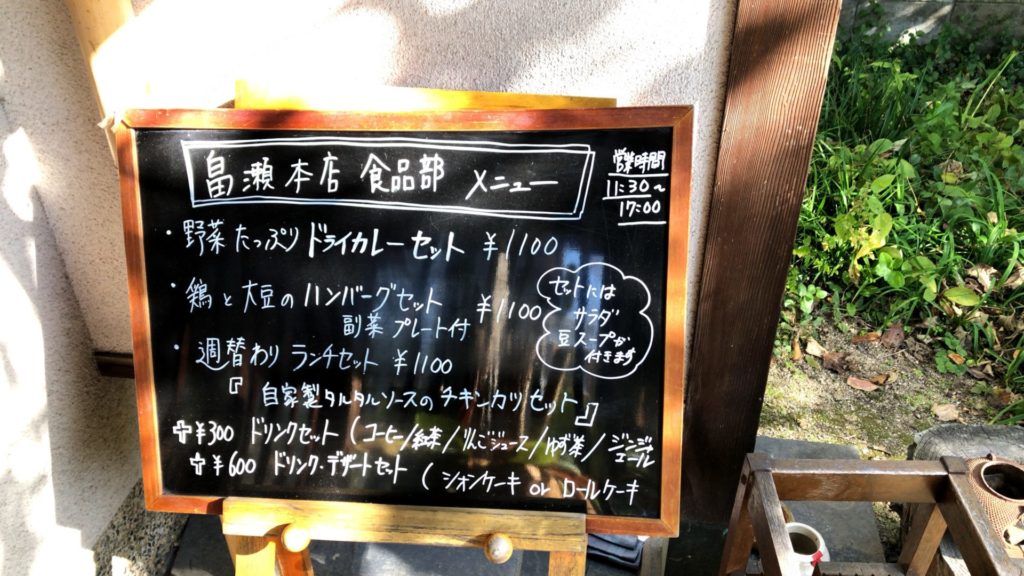 畠瀬本店 食品部 メニュー
営業時間
11:30～
17:00
・野菜たっぷり ドライカレーセット ¥1100
・鶏と大豆のハンバーグセット ¥1100
副菜プレート付
セットには
サラダ
豆スープが
付きます
・週替わり ランチセット ¥1100
『自家製タルタルソースのチキンカツセット』
+¥300 ドリンクセット (コーヒー/紅茶/りんごジュース/ゆず茶/ジンジャエール
+¥600 ドリンク・デザートセット (シフォンケーキ or ロールケーキ